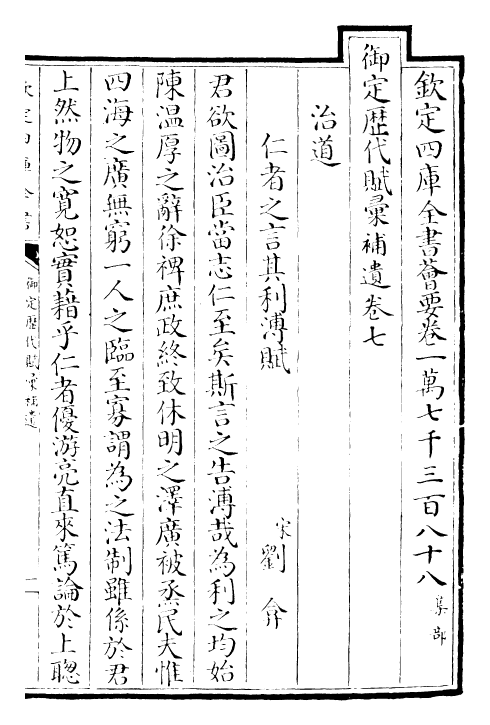 欽定四庫全書薈要卷一萬七千三百八十八 集部
御定歷代賦彙補遺卷七
治道
仁者之言其利溥賦
宋 劉弇
君欲圖治臣當志仁至矣斯言之告溥哉為利之均始
陳温厚之辭徐裨庶政終致休明之澤廣被烝民夫惟
四海之廣無窮一人之臨至寡謂為之法制雖係於君
上然物之寛恕實藉乎仁者優游亮直來篤論於上聰
御定歷代賦彙補遺